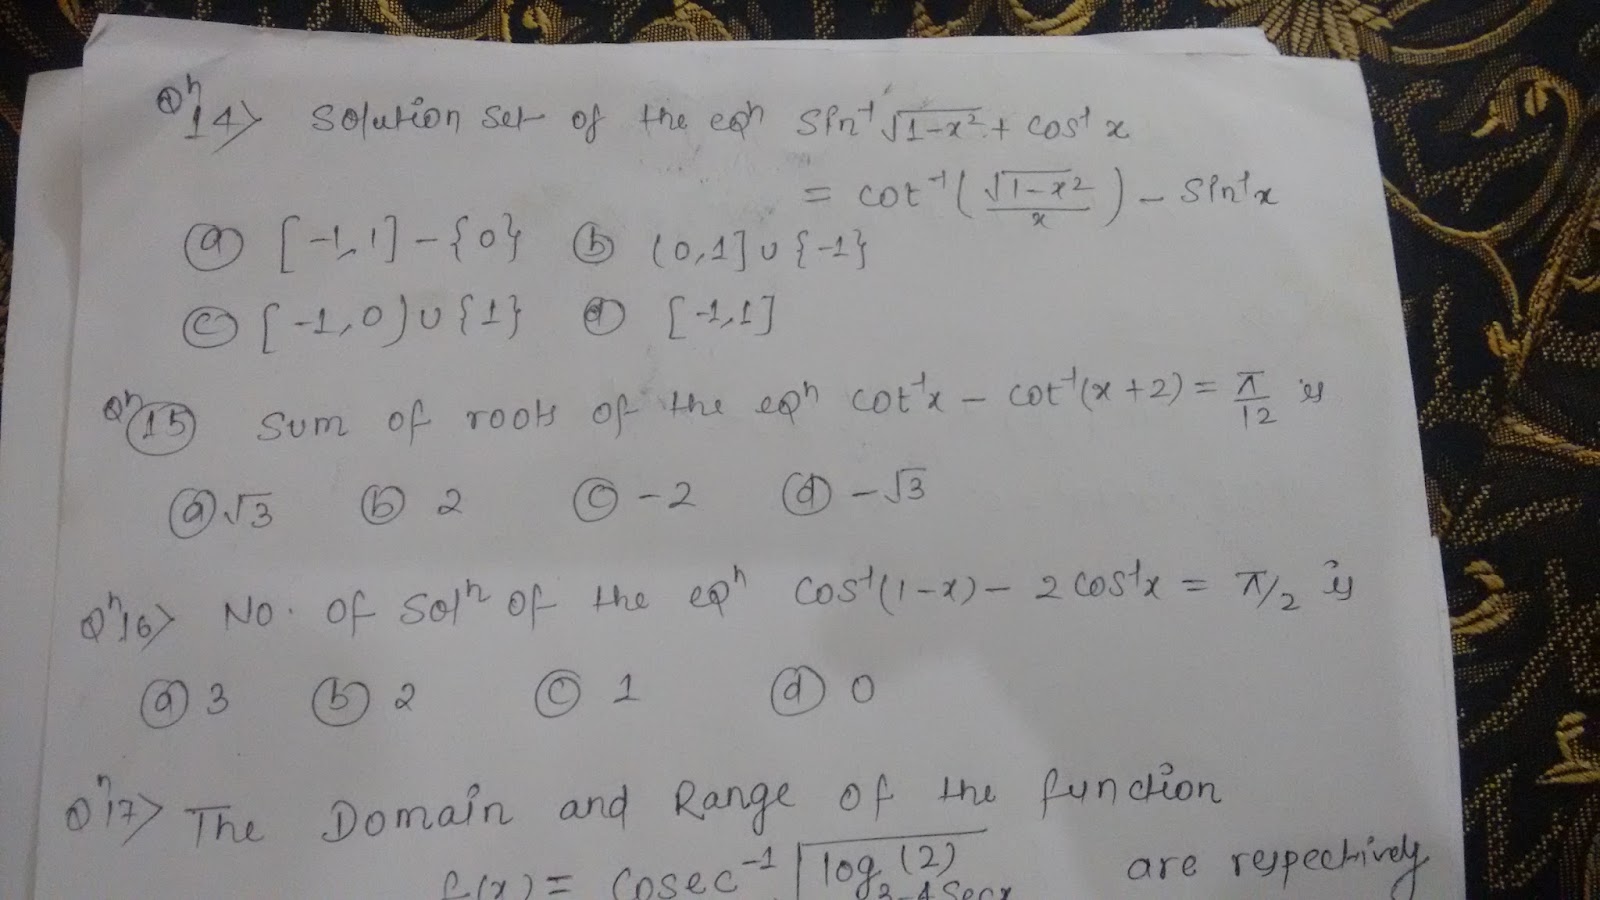 Qⁿ14> Solution set of the eqⁿ Sin⁻¹ √(1-x²) + cos⁻¹ x
= cot⁻¹ (√(1-x²)/x) - Sin⁻¹x
(a) [-1,1] - {0} (b) (0,1] ∪ {-1}
(c) [-1,0) ∪ {1} (d) [-1,1]
Qⁿ(15) Sum of roots of the eqⁿ cot⁻¹x - cot⁻¹(x+2) = π/12 is
(a) √3 (b) 2 (c) -2 (d) -√3
Qⁿ16> No. of Solⁿ of the eqⁿ cos⁻¹(1-x) - 2cos⁻¹x = π/2 is
(a) 3 (b) 2 (c) 1 (d) 0
Qⁿ17> The Domain and Range of the function
f(x) = Cosec⁻¹ √(log_(3-4Secx) (2)) are respectively